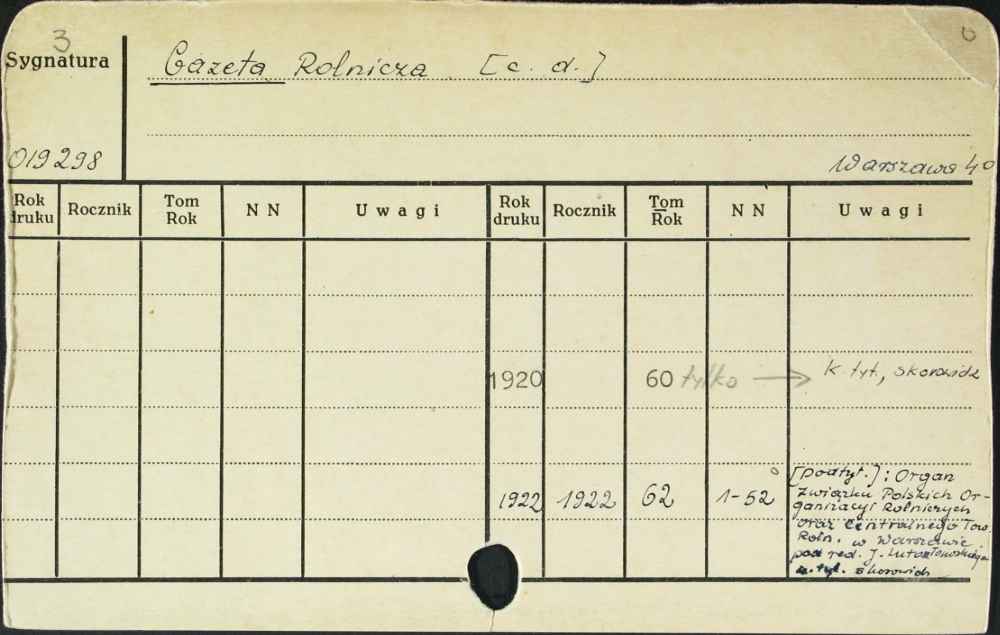 3
6
Sygnatura
Gazeta Rolnicza [c. d.]
019298
Warszawa 40
Rok druku Rocznik Tom Rok NN Uwagi Rok druku Rocznik Tom Rok NN Uwagi
1920 60 tylko → k. tyt., skorowidz
[podtyt.]: Organ
Związku Polskich Or-
1922 1922 62 1-52 ganizacyj Rolniczych
oraz Centralnego Tow.
Roln. w Warszawie
pod red. J. Lutosławskiego
k. tyt. skorowidz